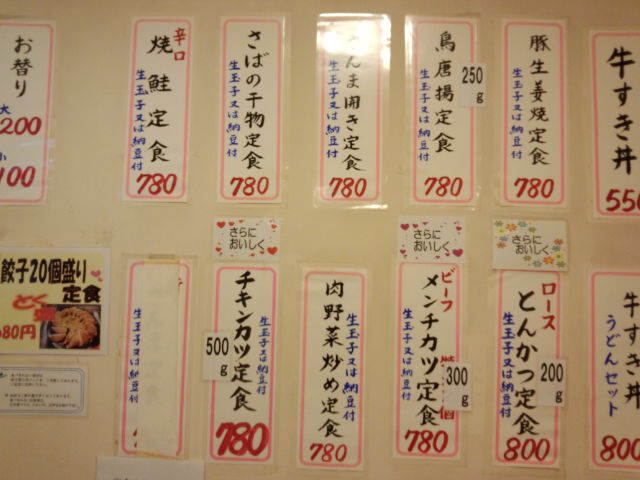 お替り
大
200
小
100
辛口
焼鮭定食
生玉子又は納豆付
780
さばの干物定食
生玉子又は納豆付
780
さんま開き定食
生玉子又は納豆付
780
鳥唐揚定食
250g
生玉子又は納豆付
780
豚生姜焼定食
生玉子又は納豆付
780
牛すき丼
550
餃子20個盛り
定食
680円
生玉子又は納豆付
さらに
おいしく
チキンカツ定食
500g
生玉子又は納豆付
780
肉野菜炒め定食
生玉子又は納豆付
780
さらに
おいしく
ビーフ
メンチカツ定食
300g
生玉子又は納豆付
780
さらに
おいしく
ロース
とんかつ定食
200g
生玉子又は納豆付
800
牛すき丼
うどんセット
800